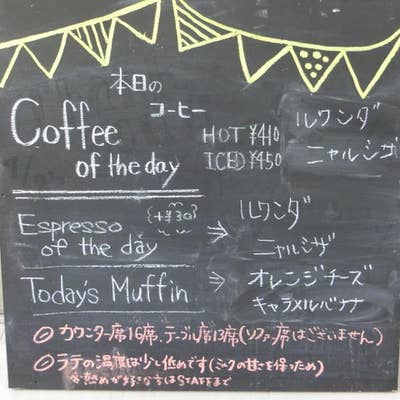 本日の
コーヒー
Coffee of the day
HOT ¥410
ICED ¥450
ルワンダ
ニャルシザ
Espresso of the day
{+¥30}
→ ルワンダ
ニャルシザ
Today's Muffin
→ オレンジチーズ
キャラメルバナナ
◎ カウンター席16席、テーブル席13席(ソファー席はございません)
◎ ラテの温度は少し低めです(ミルクの甘さを保つため)
※熱めが好きな方はSTAFFまで